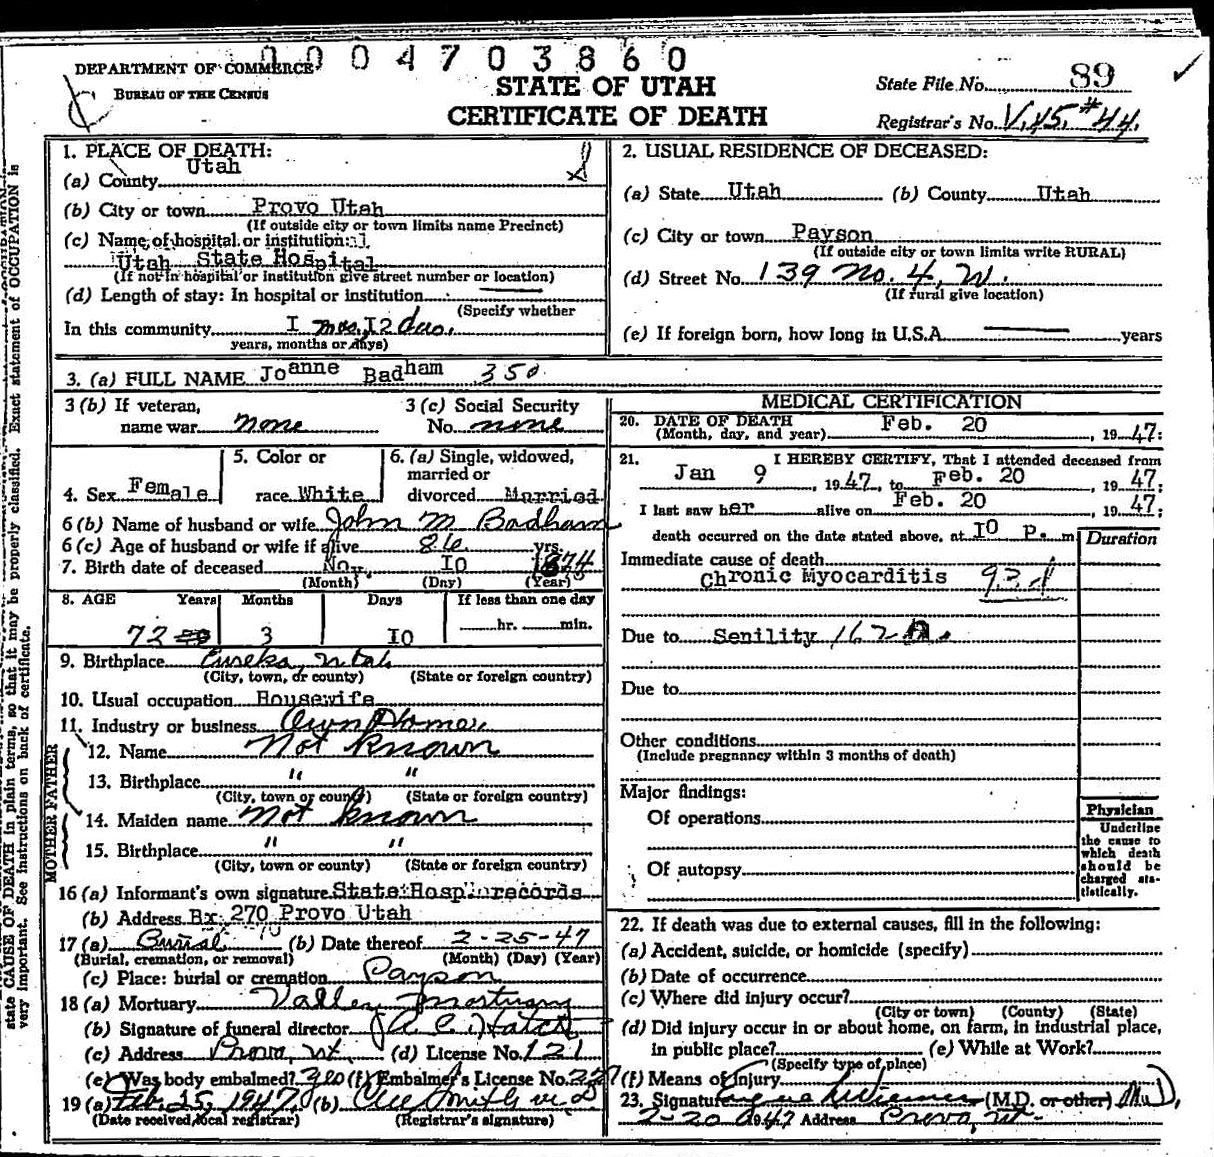 0004703860
DEPARTMENT OF COMMERCE
BUREAU OF THE CENSUS
STATE OF UTAH
CERTIFICATE OF DEATH
State File No. 89
Registrar's No. V.45. #44.
state CAUSE OF DEATH in plain terms, so that it may be properly classified. Exact statement of OCCUPATION is
very important. See instructions on back of certificate.
1. PLACE OF DEATH:
(a) County Utah
(b) City or town Provo Utah
(If outside city or town limits name Precinct)
(c) Name of hospital or institution:
Utah State Hospital
(If not in hospital or institution give street number or location)
(d) Length of stay: In hospital or institution
(Specify whether
In this community I mos. I2 das.
years, months or days)
2. USUAL RESIDENCE OF DECEASED:
(a) State Utah (b) County Utah
(c) City or town Payson
(If outside city or town limits write RURAL)
(d) Street No. 139 No. 4, W.
(If rural give location)
(e) If foreign born, how long in U.S.A. years
3. (a) FULL NAME Joanne Badham 350
3 (b) If veteran, name war none
3 (c) Social Security No. none
4. Sex Female
5. Color or race White
6. (a) Single, widowed, married or divorced Married
6 (b) Name of husband or wife John M Badham
6 (c) Age of husband or wife if alive 86 yrs.
7. Birth date of deceased Nov. I0 1874
(Month) (Day) (Year)
8. AGE Years Months Days If less than one day
72 3 I0 hr. min.
9. Birthplace Eureka, Utah
(City, town, or county) (State or foreign country)
10. Usual occupation Housewife
11. Industry or business Own Home
FATHER
12. Name Not known
13. Birthplace " "
(City, town or county) (State or foreign country)
MOTHER
14. Maiden name Not known
15. Birthplace " "
(City, town or county) (State or foreign country)
16 (a) Informant's own signature State Hosp. records
(b) Address Bx 270 Provo Utah
17 (a) Burial (b) Date thereof 2-25-47
(Burial, cremation, or removal) (Month) (Day) (Year)
(c) Place: burial or cremation Payson
18 (a) Mortuary Valley Mortuary
(b) Signature of funeral director A C Hatch
(c) Address Provo, Ut. (d) License No. 121
(e) Was body embalmed? yes (f) Embalmer's License No. 227
19 (a) Feb. 25, 1947 (b)
(Date received local registrar) (Registrar's signature)
MEDICAL CERTIFICATION
20. DATE OF DEATH Feb. 20, 1947:
(Month, day, and year)
21. I HEREBY CERTIFY, That I attended deceased from
Jan 9, 1947, to Feb. 20, 1947:
I last saw her alive on Feb. 20, 1947:
death occurred on the date stated above, at I0 P. m
Duration
Immediate cause of death
Chronic Myocarditis 93d
Due to Senility 162
Due to
Other conditions
(Include pregnancy within 3 months of death)
Major findings:
Of operations
Of autopsy
Physician
Underline
the cause to
which death
should be
charged sta-
tistically.
22. If death was due to external causes, fill in the following:
(a) Accident, suicide, or homicide (specify)
(b) Date of occurrence
(c) Where did injury occur?
(City or town) (County) (State)
(d) Did injury occur in or about home, on farm, in industrial place,
in public place? (e) While at Work?
(Specify type of place)
(f) Means of Injury
23. Signature (M.D. or other) M.D.
2-20 1947 Address Provo, Ut.